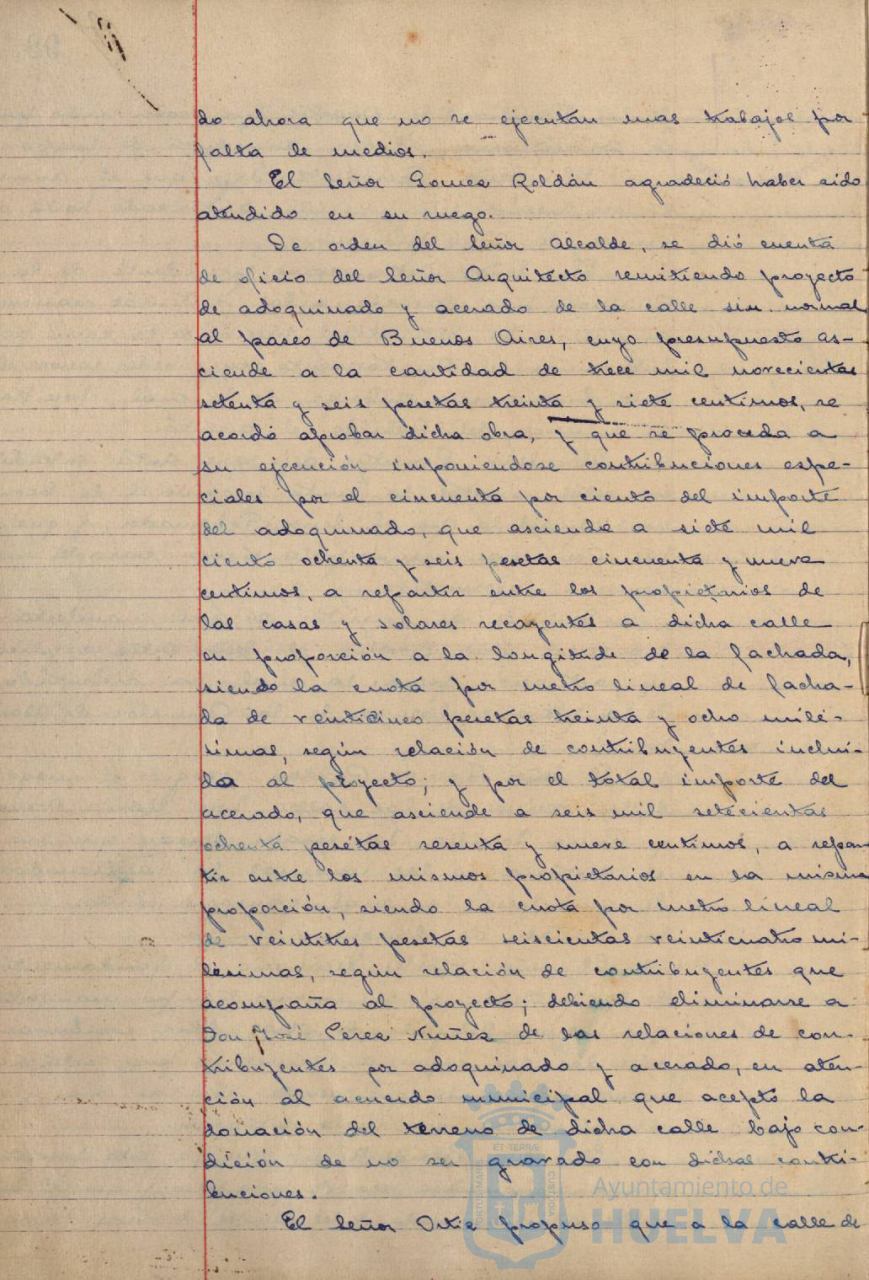 do ahora que no se ejecutan mas trabajos por
falta de medios.
El Señor Gomez Roldán agradeció haber sido
atendido en su ruego.
De orden del Señor Alcalde, se dió cuenta
de oficio del Señor Arquitecto remitiendo proyecto
de adoquinado y acerado de la calle sin normal
al paseo de Buenos Aires, cuyo presupuesto as-
ciende a la cantidad de trece mil novecientas
setenta y seis pesetas treinta y siete centimos, se
acordó aprobar dicha obra, y que se proceda a
su ejecución imponiendose contribuciones espe-
ciales por el cincuenta por ciento del importe
del adoquinado, que asciende a siete mil
ciento ochenta y seis pesetas cincuenta y nueve
centimos, a repartir entre los propietarios de
las casas y solares recayentes a dicha calle
en proporción a la longitude de la fachada,
siendo la cuota por metro lineal de facha-
da de veinticinco pesetas treinta y ocho milé-
simas, según relación de contribuyentes inclui-
da al proyecto; y por el total importe del
acerado, que asciende a seis mil setecientas
ochenta pesetas sesenta y nueve centimos, a repar-
tir entre los mismos propietarios en la misma
proporción, siendo la cuota por metro lineal
de veintitres pesetas seiscientas veinticuatro mi-
lésimas, según relación de contribuyentes que
acompaña al proyecto; debiendo eliminarse a
Don José Perez Nuñez de las relaciones de con-
tribuyentes por adoquinado y acerado, en aten-
ción al acuerdo municipal que aceptó la
donación del terreno de dicha calle bajo con-
dición de no ser gravado con dichas contri-
buciones.
El Señor Ortiz propuso que a la calle de
Ayuntamiento de
HUELVA